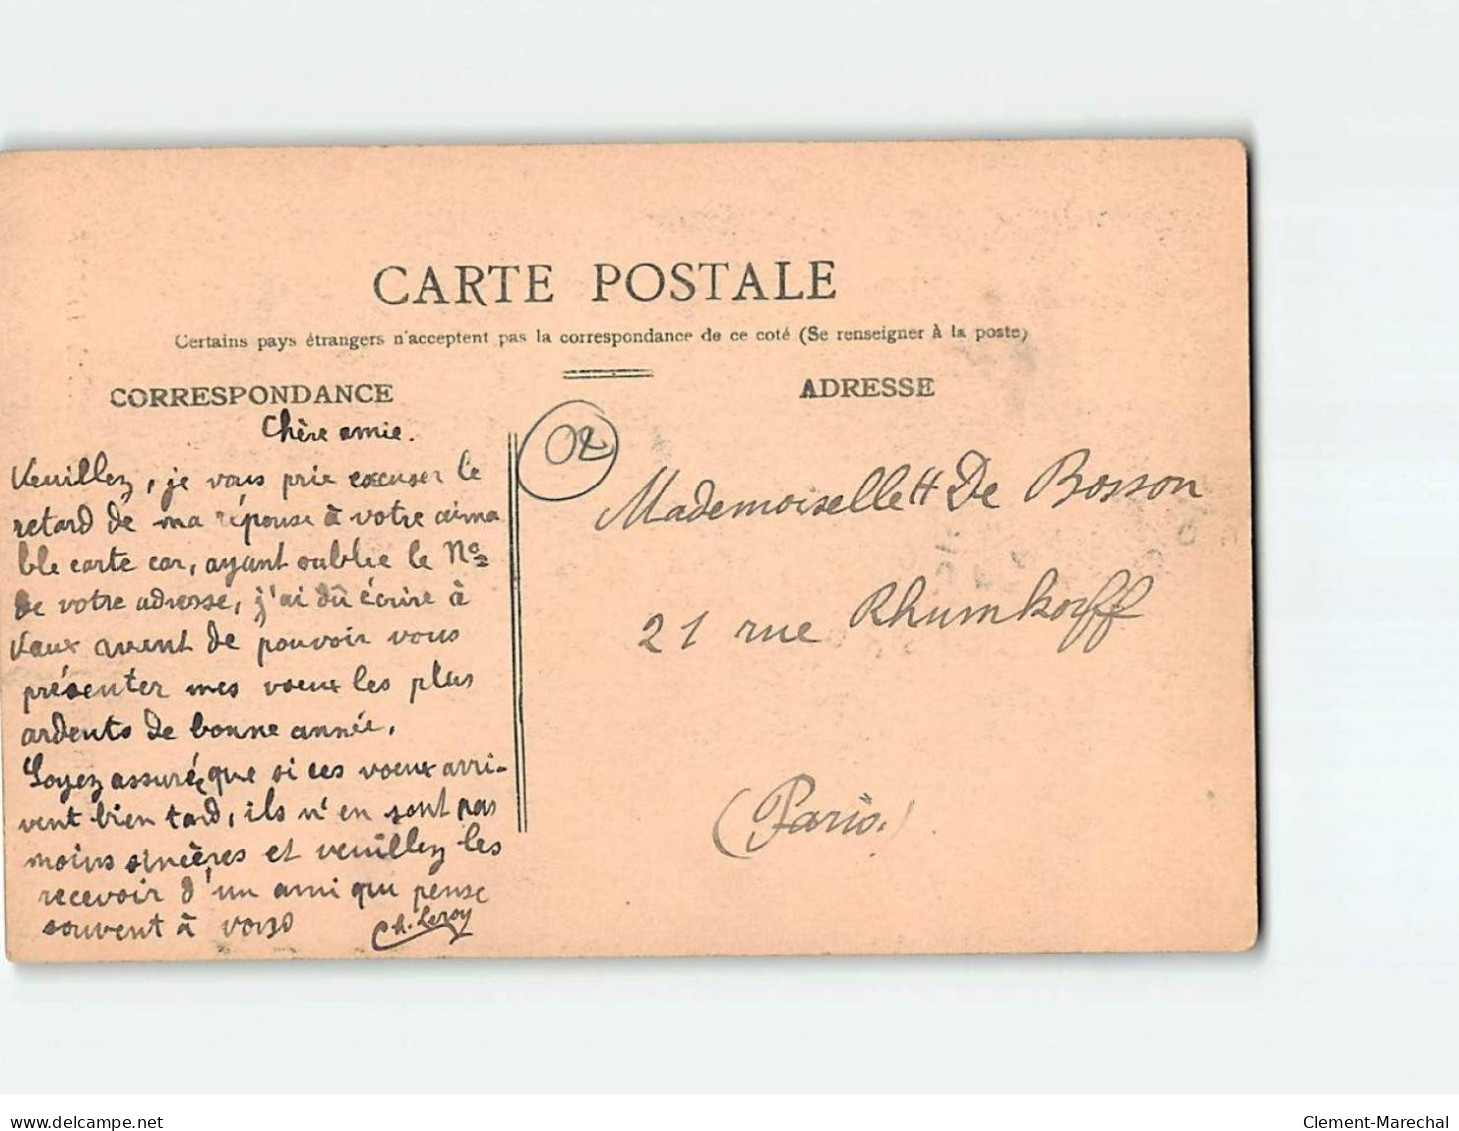 CARTE POSTALE
Certains pays étrangers n'acceptent pas la correspondance de ce coté (Se renseigner à la poste)
CORRESPONDANCE
Chère amie.
Veuillez, je vous prie excuser le
retard de ma réponse à votre aima
ble carte car, ayant oublié le No
de votre adresse, j'ai dû écrire à
Vaux avent de pouvoir vous
présenter mes voeux les plus
ardents de bonne année.
Soyez assurée que si ces voeux arri-
vent bien tard, ils n'en sont pas
moins sincères et veuillez les
recevoir d'un ami qui pense
souvent à vous
Ch. Leroy
ADRESSE
02
Mademoiselle H De Bosson
21 rue Rhumkorff
(Paris.)
delcampe.net
Clement-Marechal